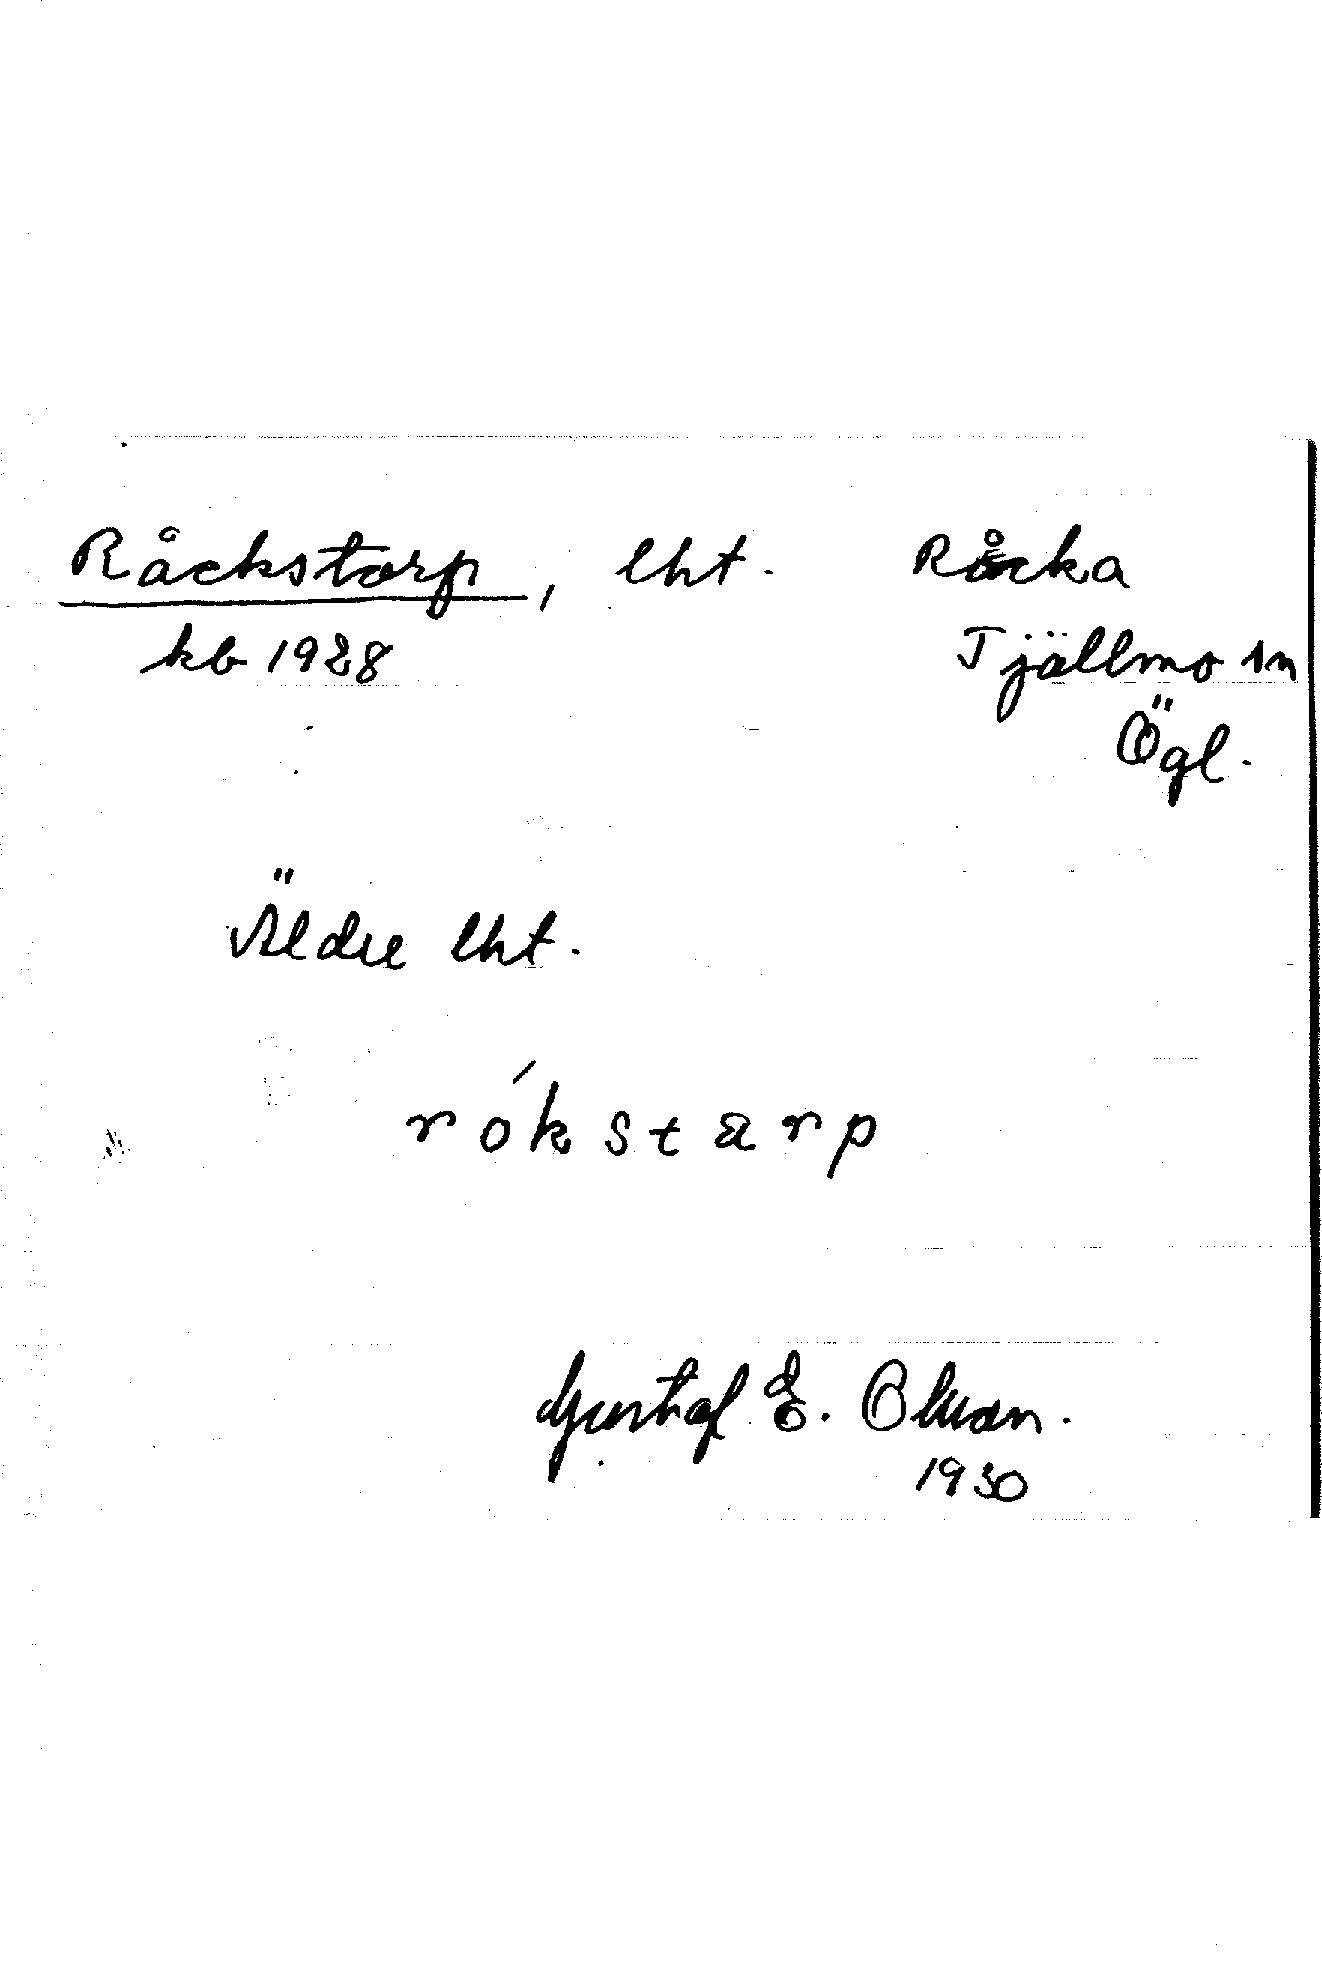 Råckstorp, lht. Råcka
kb 1928 Tjällmo sn
Ögl.
Äldre lht.
rókstarp
Gustaf E. Olsson.
1930